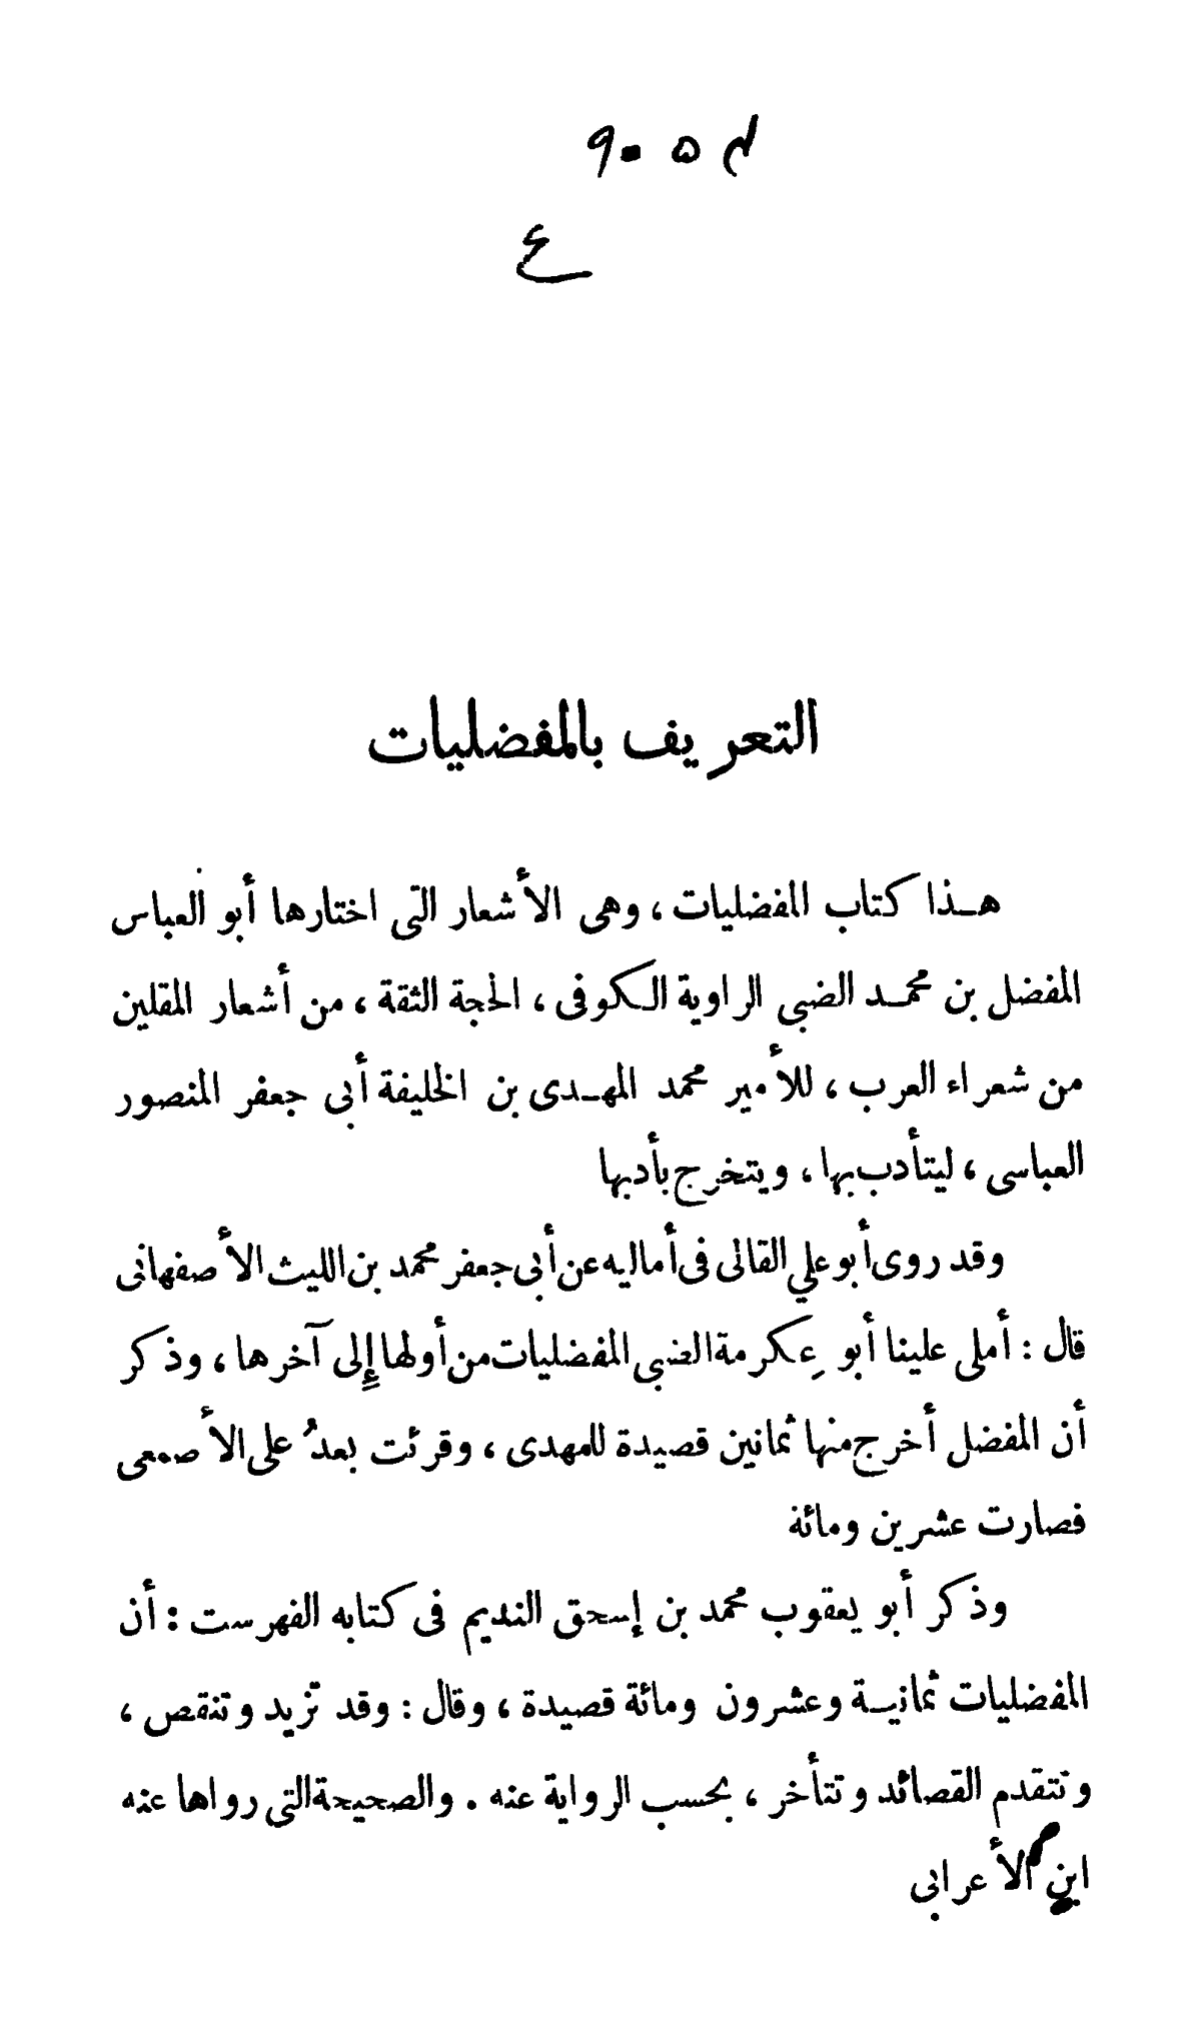 التعريف بالمفضليات
هذا كتاب المفضليات، وهى الأشعار التى اختارها أبو العباس
المفضل بن محمد الضبى الراوية الكوفى، الحجة الثقة، من أشعار المقلين
من شعراء العرب، للأمير محمد المهدى بن الخليفة أبى جعفر المنصور
العباسى، ليتأدب بها، ويتخرج بأدبها
وقد روى أبو علي القالى فى أماليه عن أبى جعفر محمد بن الليث الأصفهانى
قال: أملى علينا أبو عِكرمة الضبى المفضليات من أولها إِلى آخرها، وذكر
أن المفضل أخرج منها ثمانين قصيدة للمهدى، وقرئت بعدُ على الأصمعى
فصارت عشرين ومائة
وذكر أبو يعقوب محمد بن إسحق النديم فى كتابه الفهرست: أن
المفضليات ثمانية وعشرون ومائة قصيدة، وقال: وقد تزيد وتنقص،
وتتقدم القصائد وتتأخر، بحسب الرواية عنه. والصحيحة التى رواها عنه
ابن الأعرابى